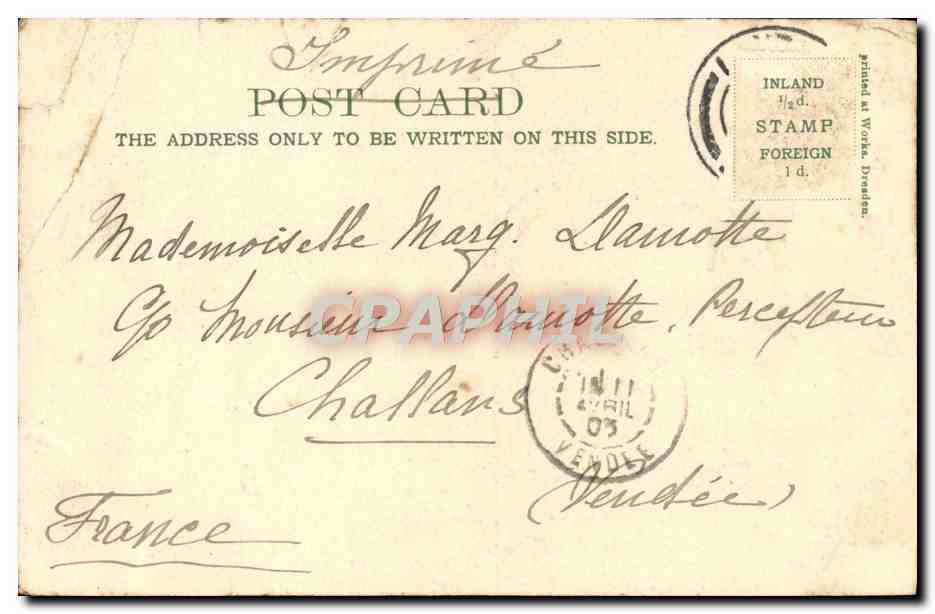 Imprimé
POST CARD
THE ADDRESS ONLY TO BE WRITTEN ON THIS SIDE.
INLAND
1/2 d.
STAMP
FOREIGN
1 d.
printed at Works. Dresden.
Mademoiselle Marg. Damotte
c/o Monsieur Damotte, Percepteur
Challans
(Vendée)
France
CHA
11
AVRIL
03
VENDÉE
CPAPHIL